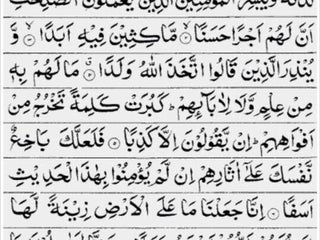 لَّدُنْهُ وَيُبَشِّرَ الْمُؤْمِنِيْنَ الَّذِيْنَ يَعْمَلُوْنَ الصّٰلِحٰتِ
اَنَّ لَهُمْ اَجْرًا حَسَنًا ۙ مَّاكِثِيْنَ فِيْهِ اَبَدًا ۙ وَّ
يُنْذِرَ الَّذِيْنَ قَالُوا اتَّخَذَ اللّٰهُ وَلَدًا ۗ مَا لَهُمْ بِهٖ
مِنْ عِلْمٍ وَّلَا لِاٰبَآئِهِمْ ؕ كَبُرَتْ كَلِمَةً تَخْرُجُ مِنْ
اَفْوَاهِهِمْ ؕ اِنْ يَّقُوْلُوْنَ اِلَّا كَذِبًا ۝ فَلَعَلَّكَ بَاخِعٌ
نَّفْسَكَ عَلٰٓى اٰثَارِهِمْ اِنْ لَّمْ يُؤْمِنُوْا بِهٰذَا الْحَدِيْثِ
اَسَفًا ۝ اِنَّا جَعَلْنَا مَا عَلَى الْاَرْضِ زِيْنَةً لَّهَا